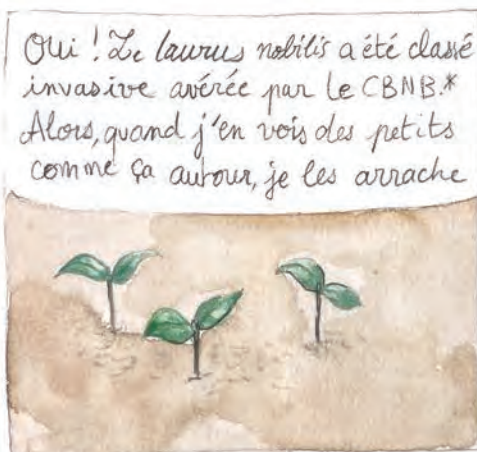 Oui ! Le laurus nobilis a été classé
invasive avérée par le CBNB.*
Alors, quand j'en vois des petits
comme ça autour, je les arrache